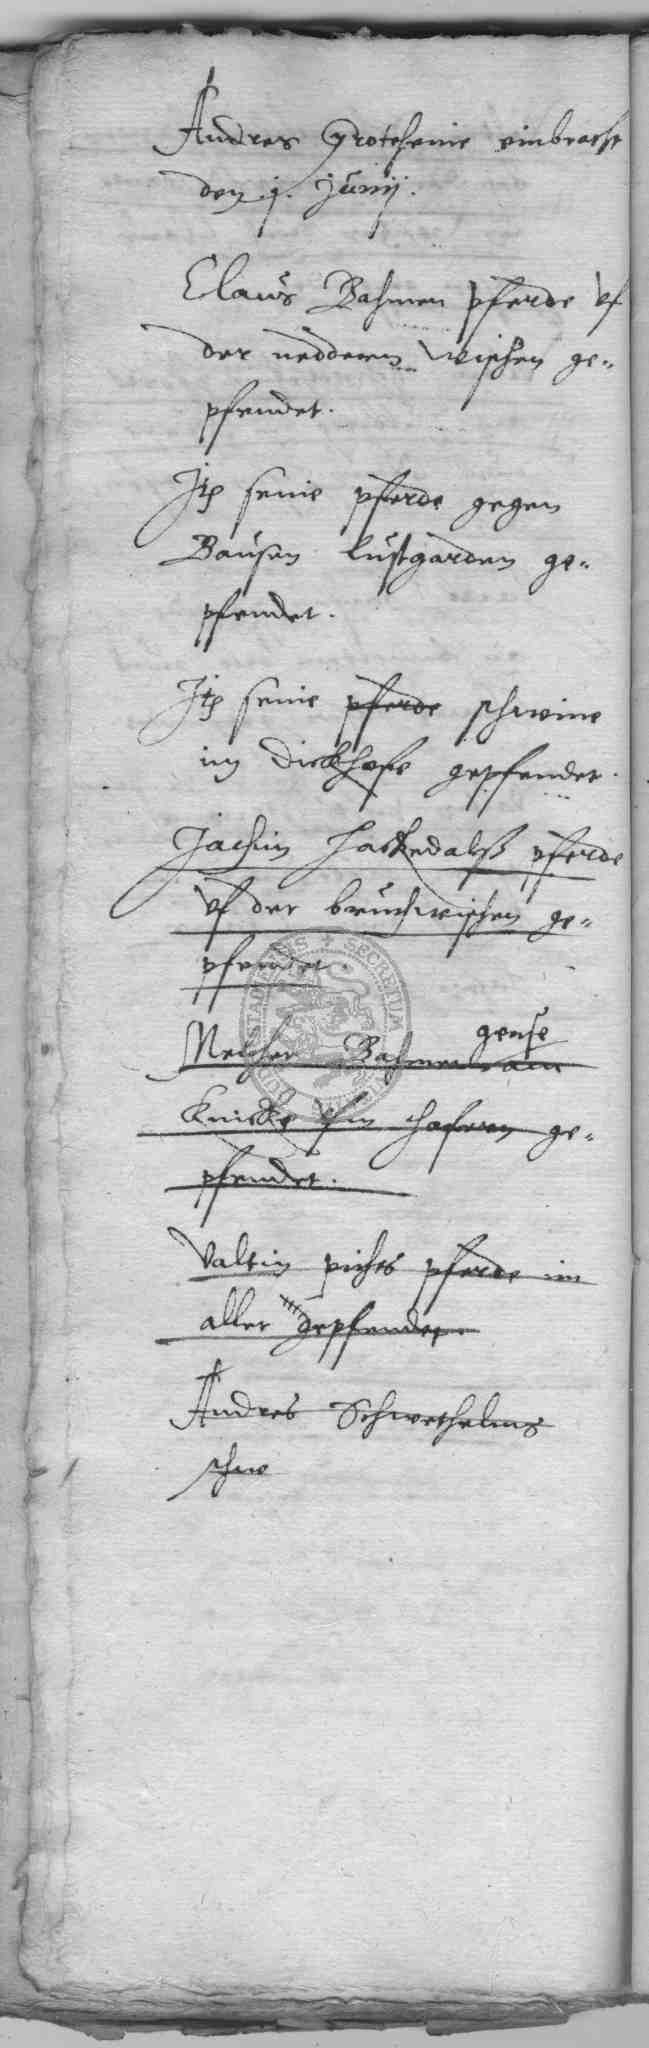 Andres Grotehenie einbracht
den j. Junij.
Claus Bahmen pferde vf
der nedderen wischen ge-
pfendet.
Jtz seine pferde gegen
Bausen lustgarden ge-
pfendet.
Jtz seine pferde schweine
im dickhofe gepfendet.
Jachim Hackedalß pferde
vf der bruchwischen ge-
pfendet.
Melcher Bahmen gense am
knicke vfm haferen ge-
pfendet.
Valtin pichts pferde im
aller gepfendet.
Andres Schwethelms
schwe
SECRETUM